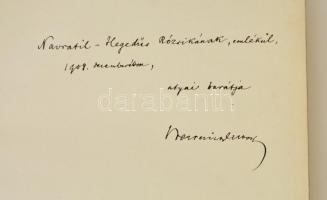 Navratil - Hegedűs Rózsikának, emlékül,
1908. decemberben,
atyai barátja
darabanth